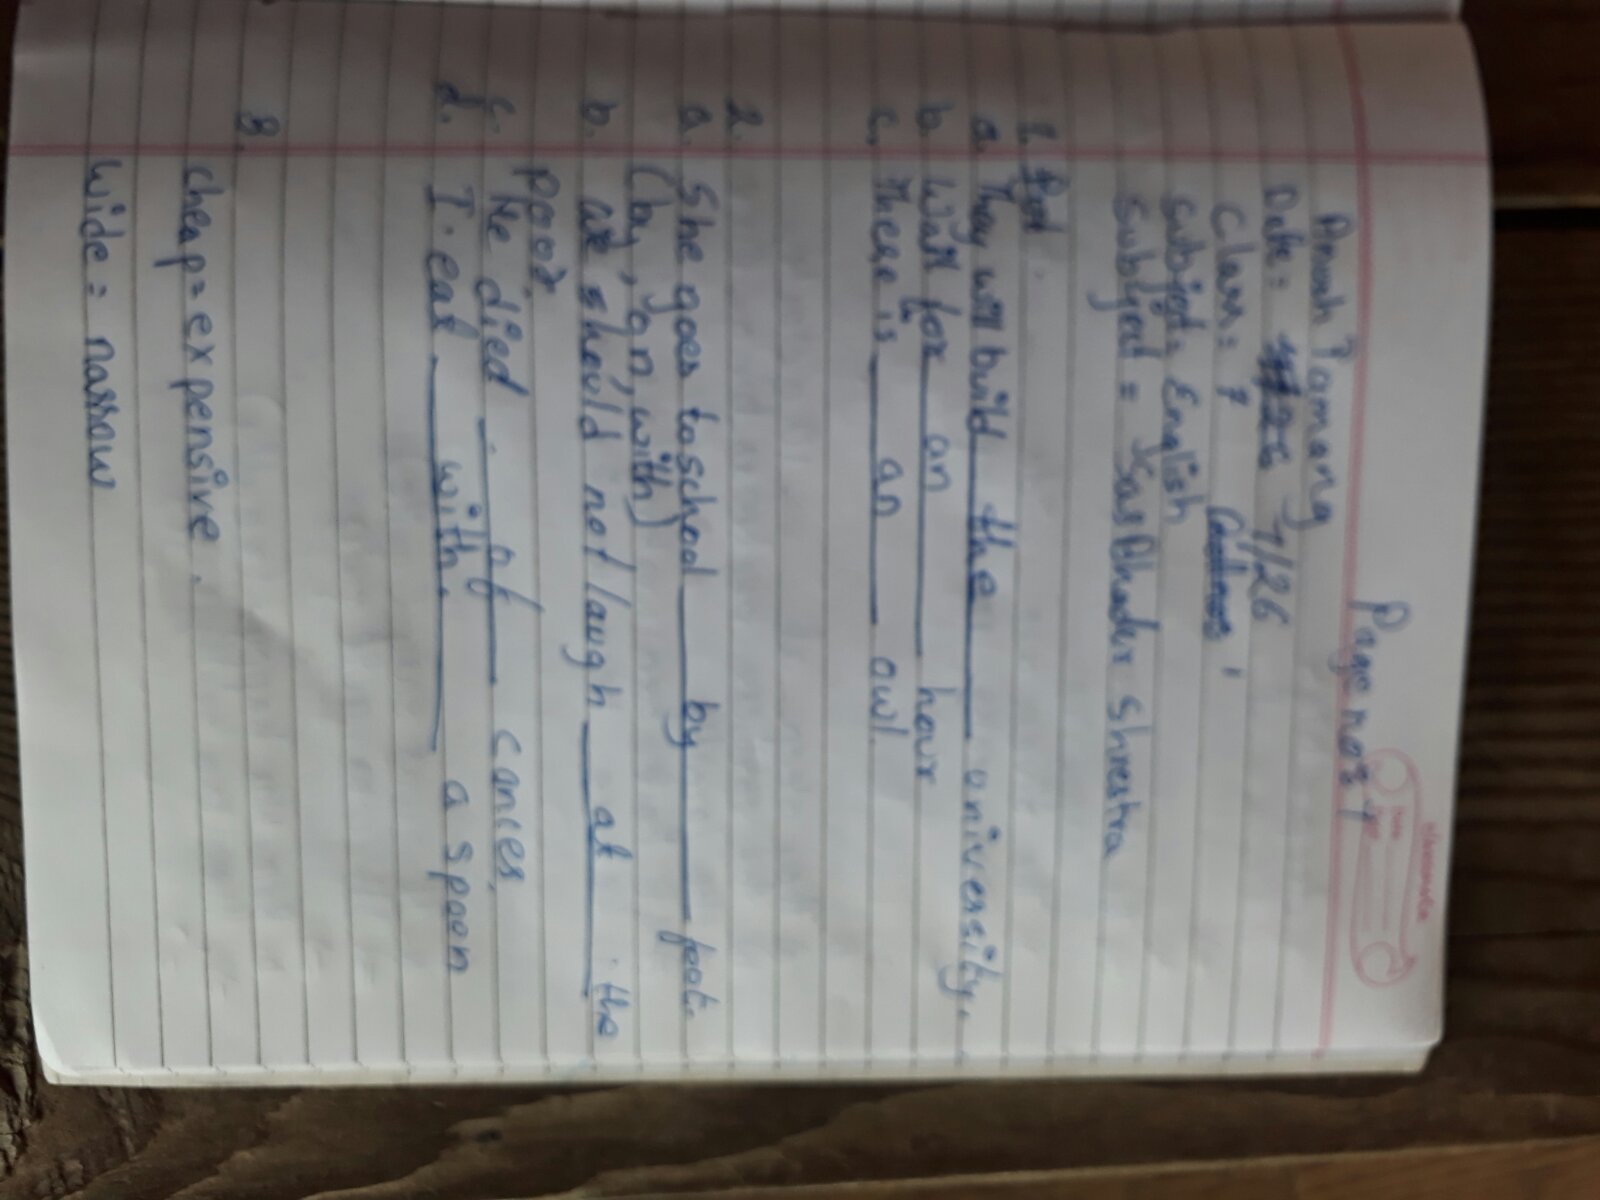 Page no:- 1
Tamang
Date = 1/26
Class = 7
Subject = English
Subject = Bhadur Shrestra
1.
a. They will build the university.
b. Wait for an hour
c. There is an owl.
2.
a. She goes to school by foot.
(by, on, with)
b. we should not laugh at the
ppoor.
c. He died of cances.
d. I eat with. a spoon
3.
cheap = expensive.
wide = narrow